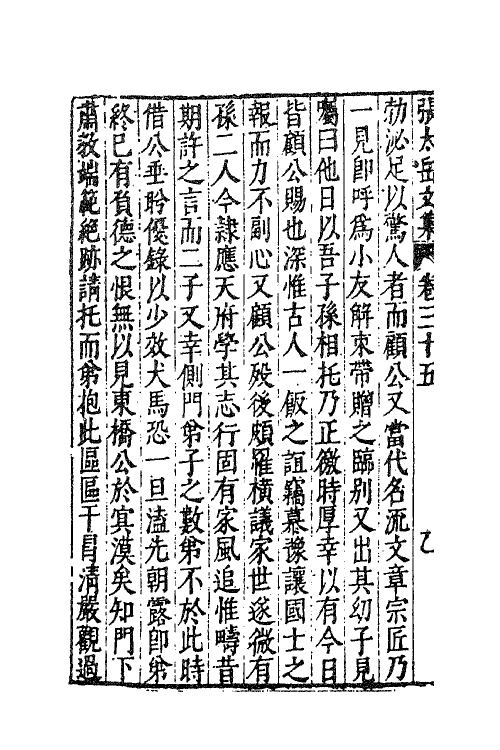 張太岳文集 卷三十五 乙
勃泌足以驚人者而顧公又當代名流文章宗匠乃
一見卽呼爲小友解束帶贈之臨别又出其幼子見
囑曰他日以吾子孫相托乃正徼時厚幸以有今日
皆顧公賜也深惟古人一飯之誼竊慕豫讓國士之
報而力不副心又顧公殁後頗罹橫議家世遂微有
孫二人今隷應天府學其志行固有家風追惟疇昔
期許之言而二子又幸側門弟子之數弟不於此時
借公垂盻優錄以少效犬馬恐一旦溘先朝露卽弟
終已有負德之恨無以見東橋公於㝠漠矣知門下
肅敎端範絶跡請托而弟抱此區區干冒清嚴觀過